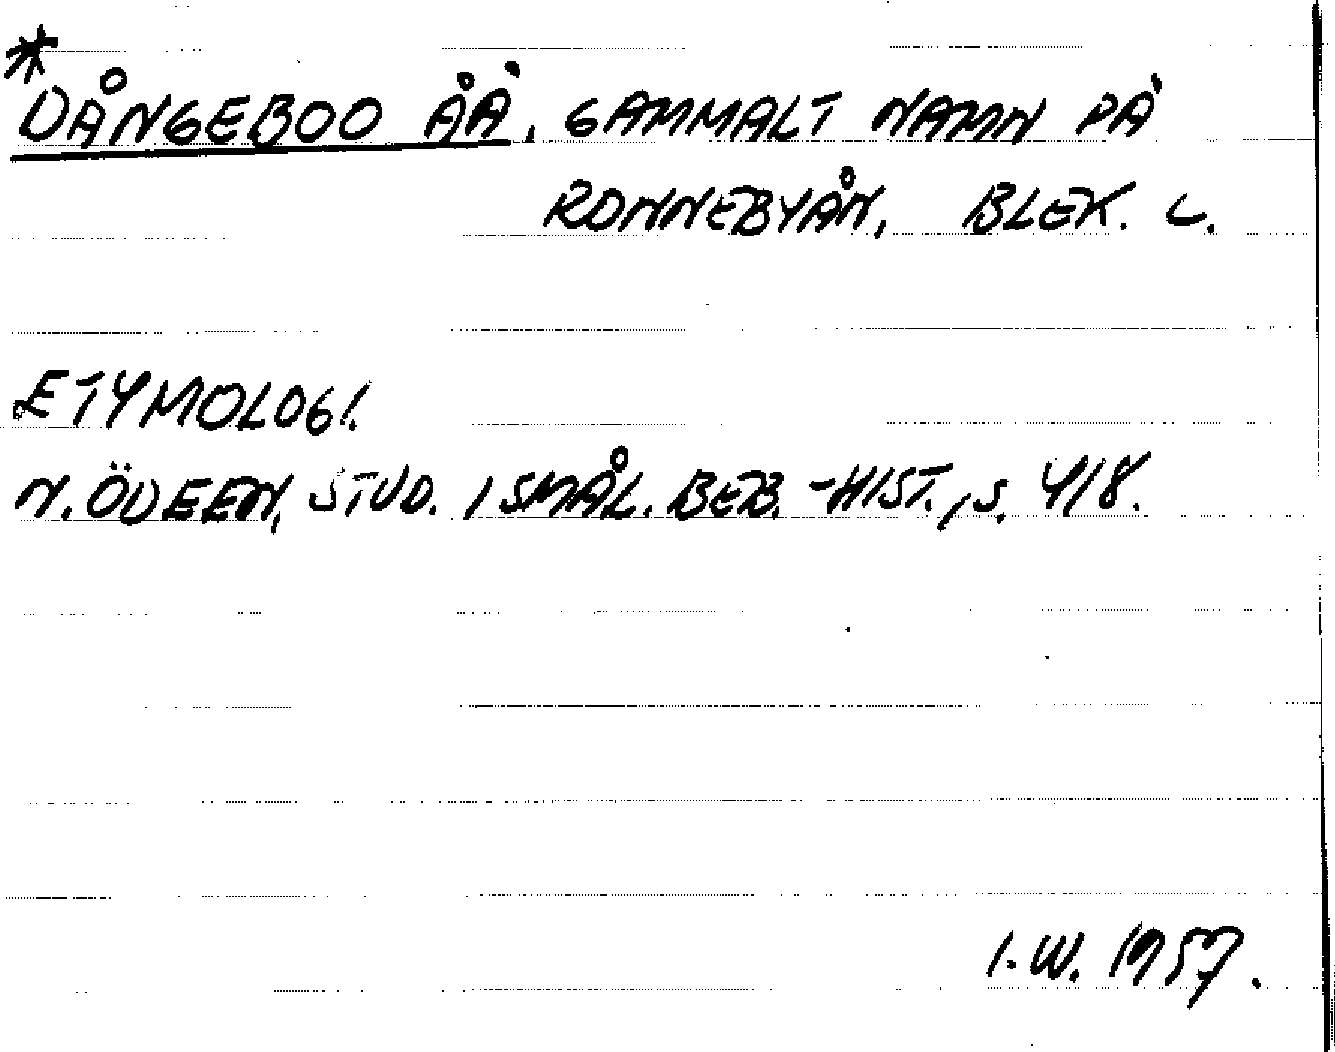 *DÅNGEBOO ÅÅ, GAMMALT NAMN PÅ
RONNEBYÅN, BLEK. L.
ETYMOLOGI.
N. ÖDEEN, STUD. I SMÅL. BEB.-HIST., S. 418.
I.W. 1957.